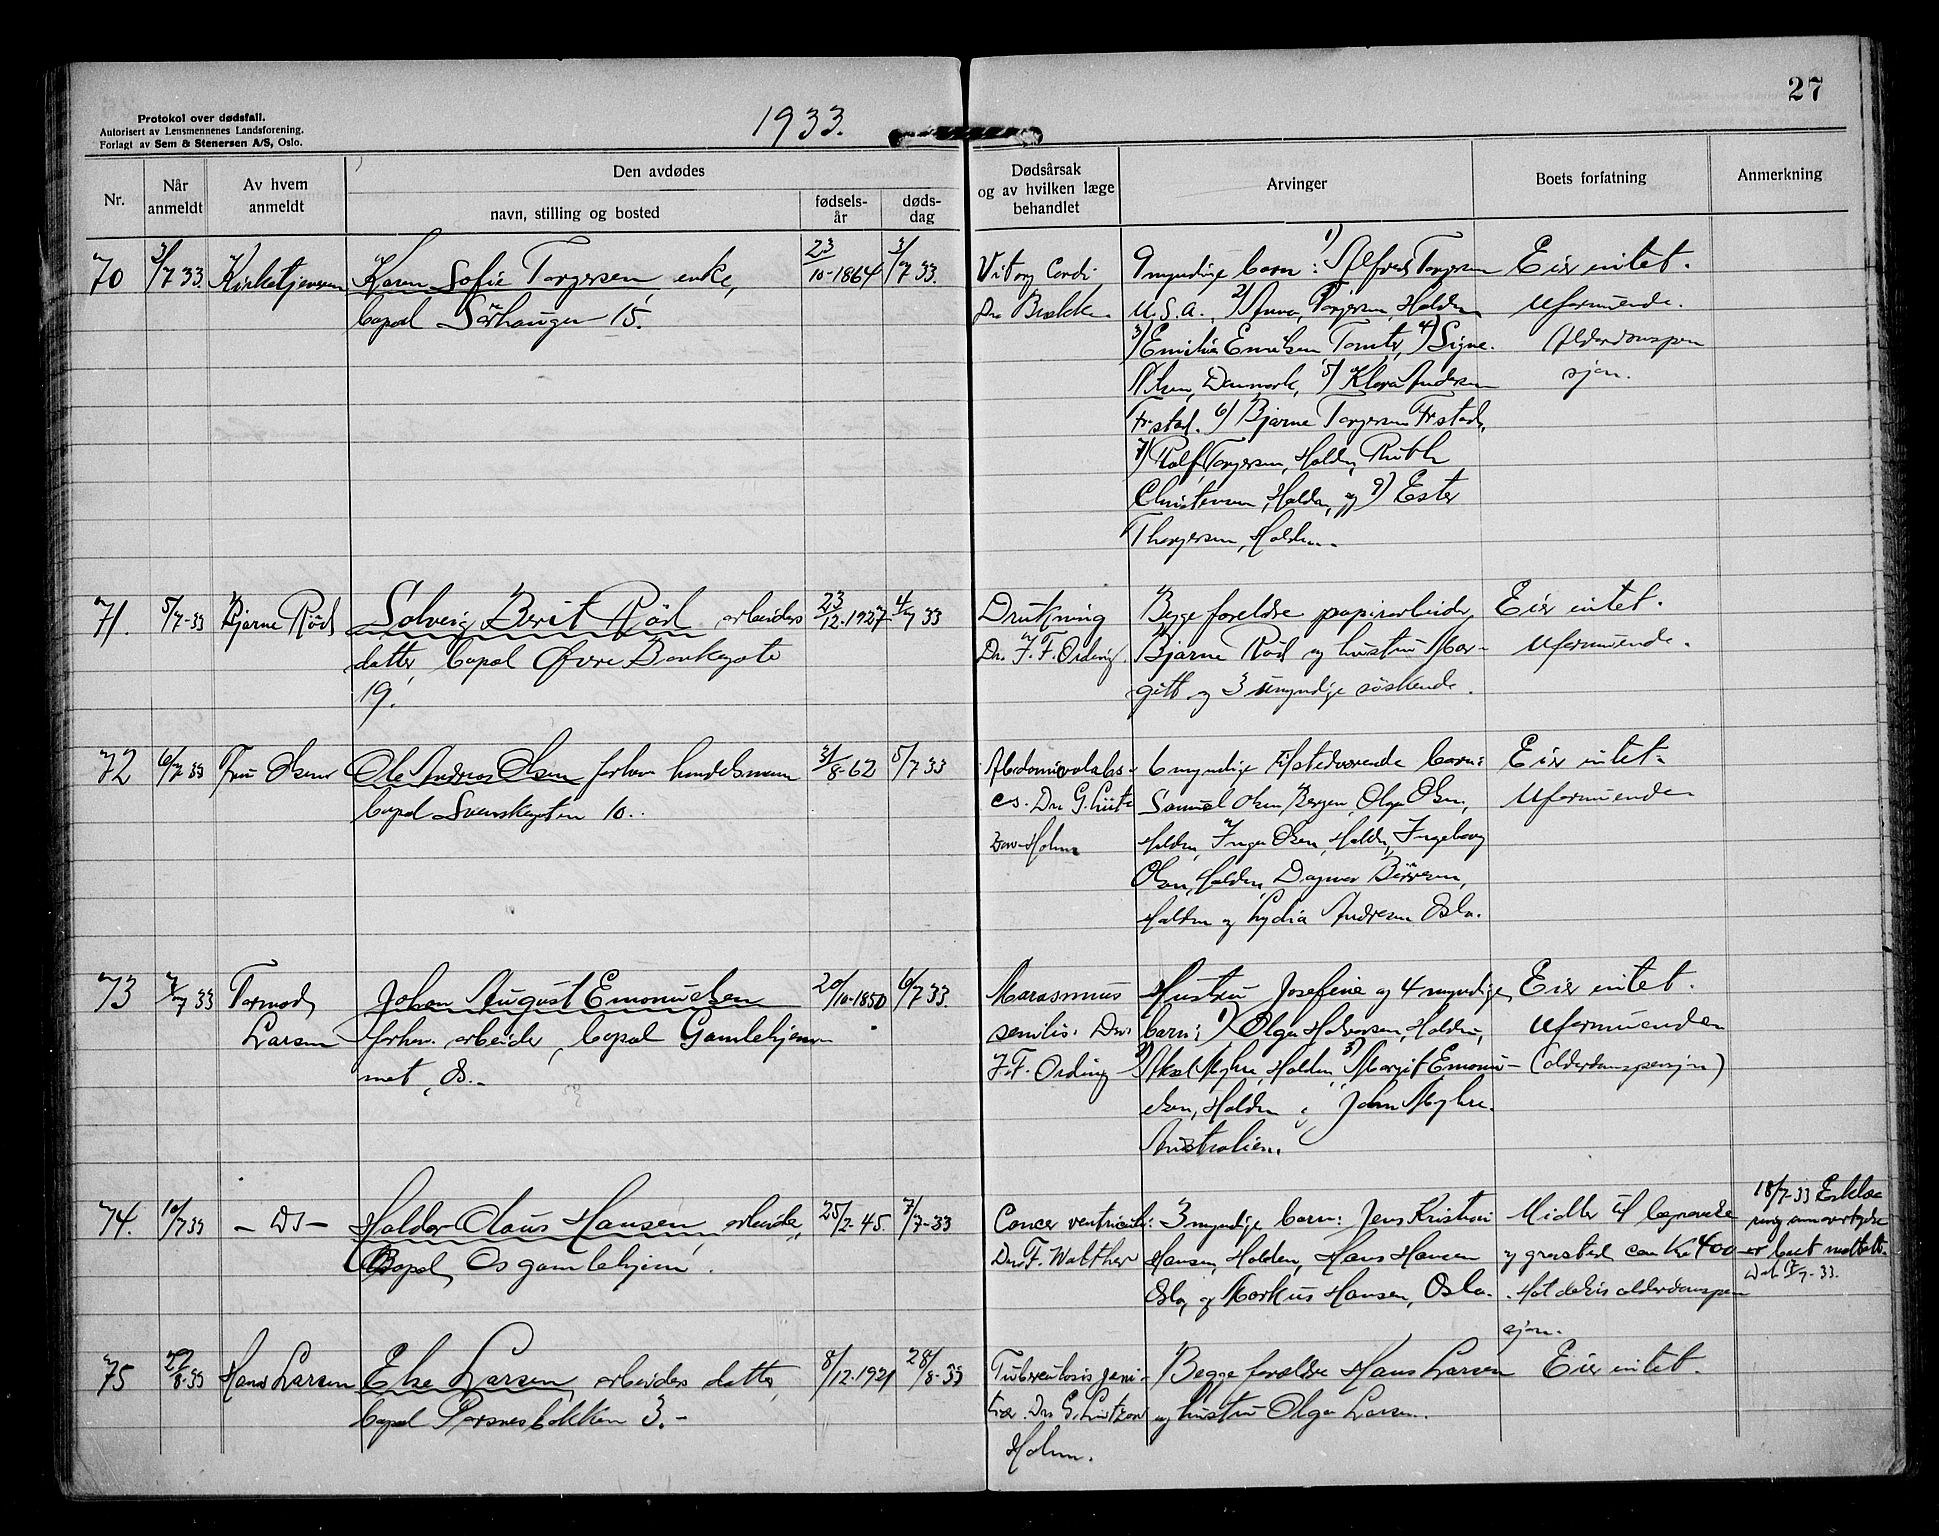 27
Protokol over dødsfall.
Autorisert av Lensmennenes Landsforening.
Forlagt av Sem & Stenersen A/S, Oslo.
1933.
Nr.
Når anmeldt
Av hvem anmeldt
Den avdødes
navn, stilling og bosted
fødsels-år
døds-dag
Dødsårsak og av hvilken læge behandlet
Arvinger
Boets forfatning
Anmerkning
70 3/7 33. Kirketjeneren Karen Sofie Torgersen, enke, 23/10-1864 3/7 33. Vit. org Cordi. 9 myndige barn: 1) Alfred Torgersen Eier intet.
bopæl Sørhaugen 15. Dr. Brække U.S.A., 2) Anna Torgersen, Halden Uformuende.
3) Emilie Emilsen Tomter, 4) Signe Alderdomspen
Olsen, Danmark, 5) Klara Andersen sjon.
Fr.stad. 6) Bjarne Torgersen Fr.stad,
7) Rolf Torgersen, Halden, Ruth
Christensen, Halden, og 9) Ester
Thorgersen, Halden.
71. 5/7-33 Bjarne Rød Solveig Berit Rød, arbeiders 23/12-1927 4/7 33 Drukning Begge foreldre papirarbeider Eier intet.
datter, bopæl Øvre Bankegate Dr. F. F. Ording. Bjarne Rød og hustru Mar- Uformuende.
19. gitt og 3 umyndige søskende.
72 6/7 33 Fru Olsen Ole Andreas Olsen forhen handelsmann 3/8-62 5/7 33 Abdominalabs- 6 myndige tilstedværende barn: Eier intet.
bopæl Svenskegaten 10. es. Dr. G. Lüt- Samuel Olsen Bergen, Olga Olsen, Uformuende
zow-Holm Halden, Inga Olsen, Halden, Ingeborg
Olsen, Halden, Dagmar Børresen,
Halden og Lydia Andresen Oslo.
73 7/7 33 Tormod Johan August Emanuelsen 20/10-1850 6/7 33. Marasmus Hustru Josefine og 4 myndige Eier intet.
Larsen forhen. arbeider, bopæl Gamlehjem- senilis. Dr. barn: 1) Olga Halvorsen, Halden, Uformuenden
met, Os. F. F. Ording 2) Aksel Myhre, Halden, 3) Margit Emanu- (alderdomspensjon)
elsen, Halden, John Myhre.
Australien.
74. 10/7 33 - Ds - Halvor Claus Hansen, arbeider, 25/2-45. 7/7-33 Cancer ventriculi: 3 myndige barn: Jens Kristian Midler til begravelse 18/7-33 Erklæ
Bopæl, Os gamlehjem. Dr. F. Walther Hansen, Halden, Hans Hansen og gravsted ca Kr 400 ring
Oslo, og Markus Hansen, Oslo. Hat delvis alderdomspen
sjon.
75 29/8-33 Hans Larsen Else Larsen, arbeiders datter, 8/12-1921 28/8-33 Tuberculosis geni- Begge forældre Hans Larsen Eier intet.
bopæl Porsnesbakken 3.- Dr. G. Lützow og hustru Olga Larsen.
Holm.